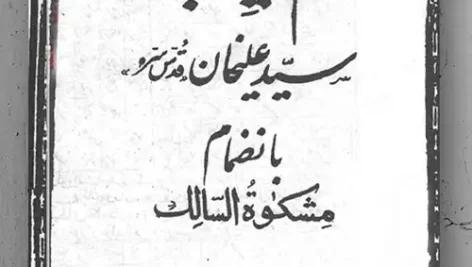 سیّد علیخان «قُدّس سرّه»
با نضمام
مشکوٰةُ السّالِك